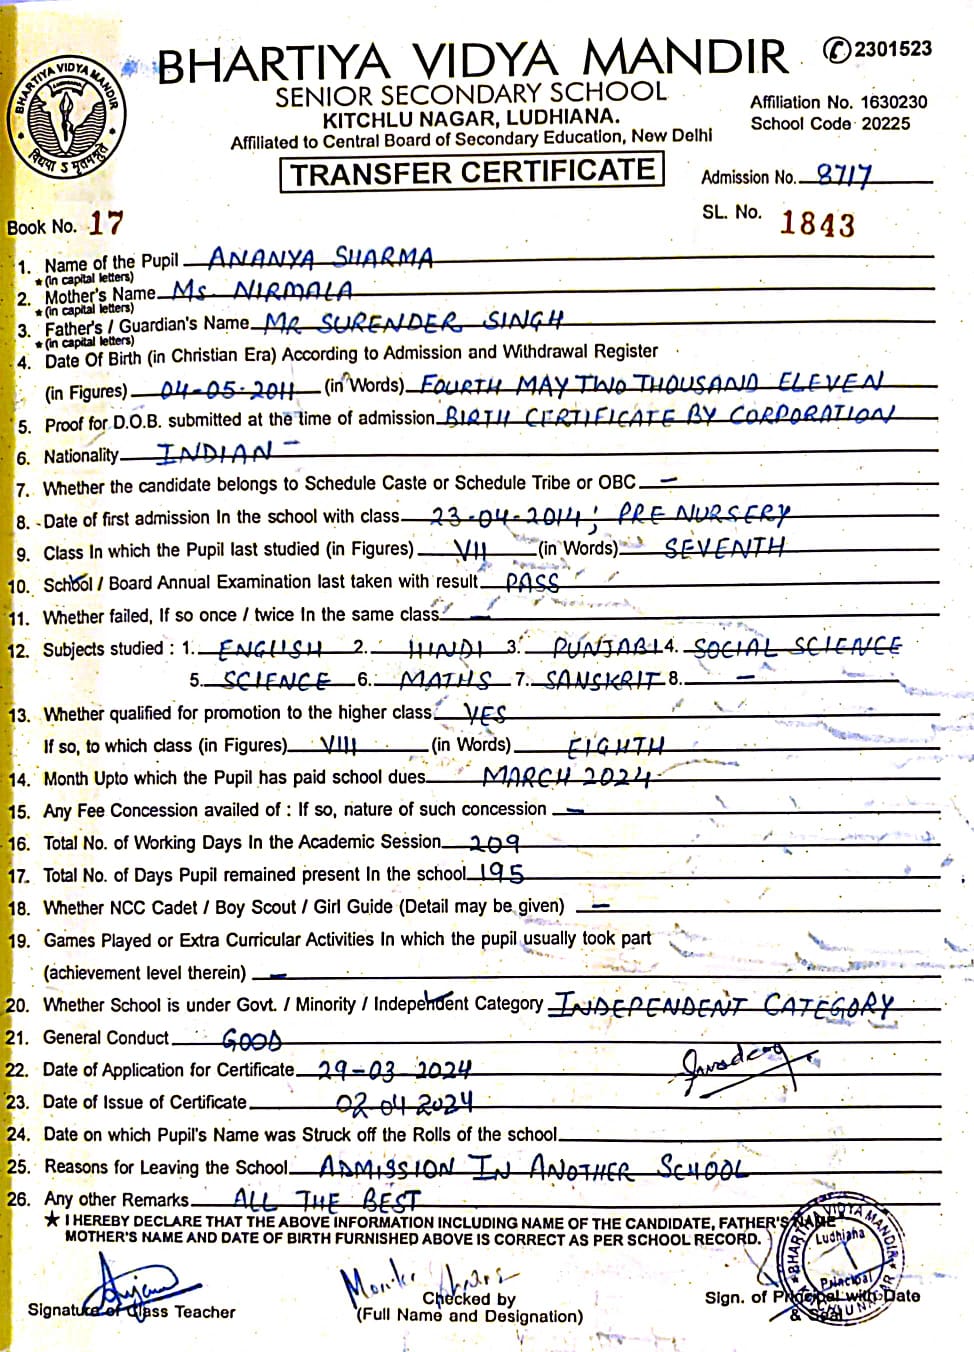 BHARTIYA VIDYA MANDIR
2301523
SENIOR SECONDARY SCHOOL
KITCHLU NAGAR, LUDHIANA.
Affiliated to Central Board of Secondary Education, New Delhi
Affiliation No. 1630230
School Code 20225
TRANSFER CERTIFICATE
Admission No. 8717
Book No. 17
SL. No. 1843
1. Name of the Pupil ANANYA SHARMA
* (in capital letters)
2. Mother's Name Ms NIRMALA
* (in capital letters)
3. Father's / Guardian's Name MR SURENDER SINGH
* (in capital letters)
4. Date Of Birth (in Christian Era) According to Admission and Withdrawal Register
(in Figures) 04-05-2011 (in Words) FOURTH MAY TWO THOUSAND ELEVEN
5. Proof for D.O.B. submitted at the time of admission BIRTH CERTIFICATE BY CORPORATION
6. Nationality INDIAN
7. Whether the candidate belongs to Schedule Caste or Schedule Tribe or OBC —
8. Date of first admission In the school with class 23-04-2014; PRE NURSERY
9. Class In which the Pupil last studied (in Figures) VII (in Words) SEVENTH
10. School / Board Annual Examination last taken with result PASS
11. Whether failed, If so once / twice In the same class —
12. Subjects studied : 1. ENGLISH 2. HINDI 3. PUNJABI 4. SOCIAL SCIENCE
5. SCIENCE 6. MATHS 7. SANSKRIT 8. —
13. Whether qualified for promotion to the higher class YES
If so, to which class (in Figures) VIII (in Words) EIGHTH
14. Month Upto which the Pupil has paid school dues MARCH 2024
15. Any Fee Concession availed of : If so, nature of such concession —
16. Total No. of Working Days In the Academic Session 209
17. Total No. of Days Pupil remained present In the school 195
18. Whether NCC Cadet / Boy Scout / Girl Guide (Detail may be given) —
19. Games Played or Extra Curricular Activities In which the pupil usually took part
(achievement level therein) —
20. Whether School is under Govt. / Minority / Independent Category INDEPENDENT CATEGORY
21. General Conduct GOOD
22. Date of Application for Certificate 29-03-2024
23. Date of Issue of Certificate 02-04-2024
24. Date on which Pupil's Name was Struck off the Rolls of the school
25. Reasons for Leaving the School ADMISSION IN ANOTHER SCHOOL
26. Any other Remarks ALL THE BEST
★ I HEREBY DECLARE THAT THE ABOVE INFORMATION INCLUDING NAME OF THE CANDIDATE, FATHER'S NAME
MOTHER'S NAME AND DATE OF BIRTH FURNISHED ABOVE IS CORRECT AS PER SCHOOL RECORD.
BHARTIYA VIDYA MANDIR
Ludhiana
Principal
KITCHLU NAGAR
Signature of Class Teacher
Checked by
(Full Name and Designation)
Sign. of Principal with Date
& Seal